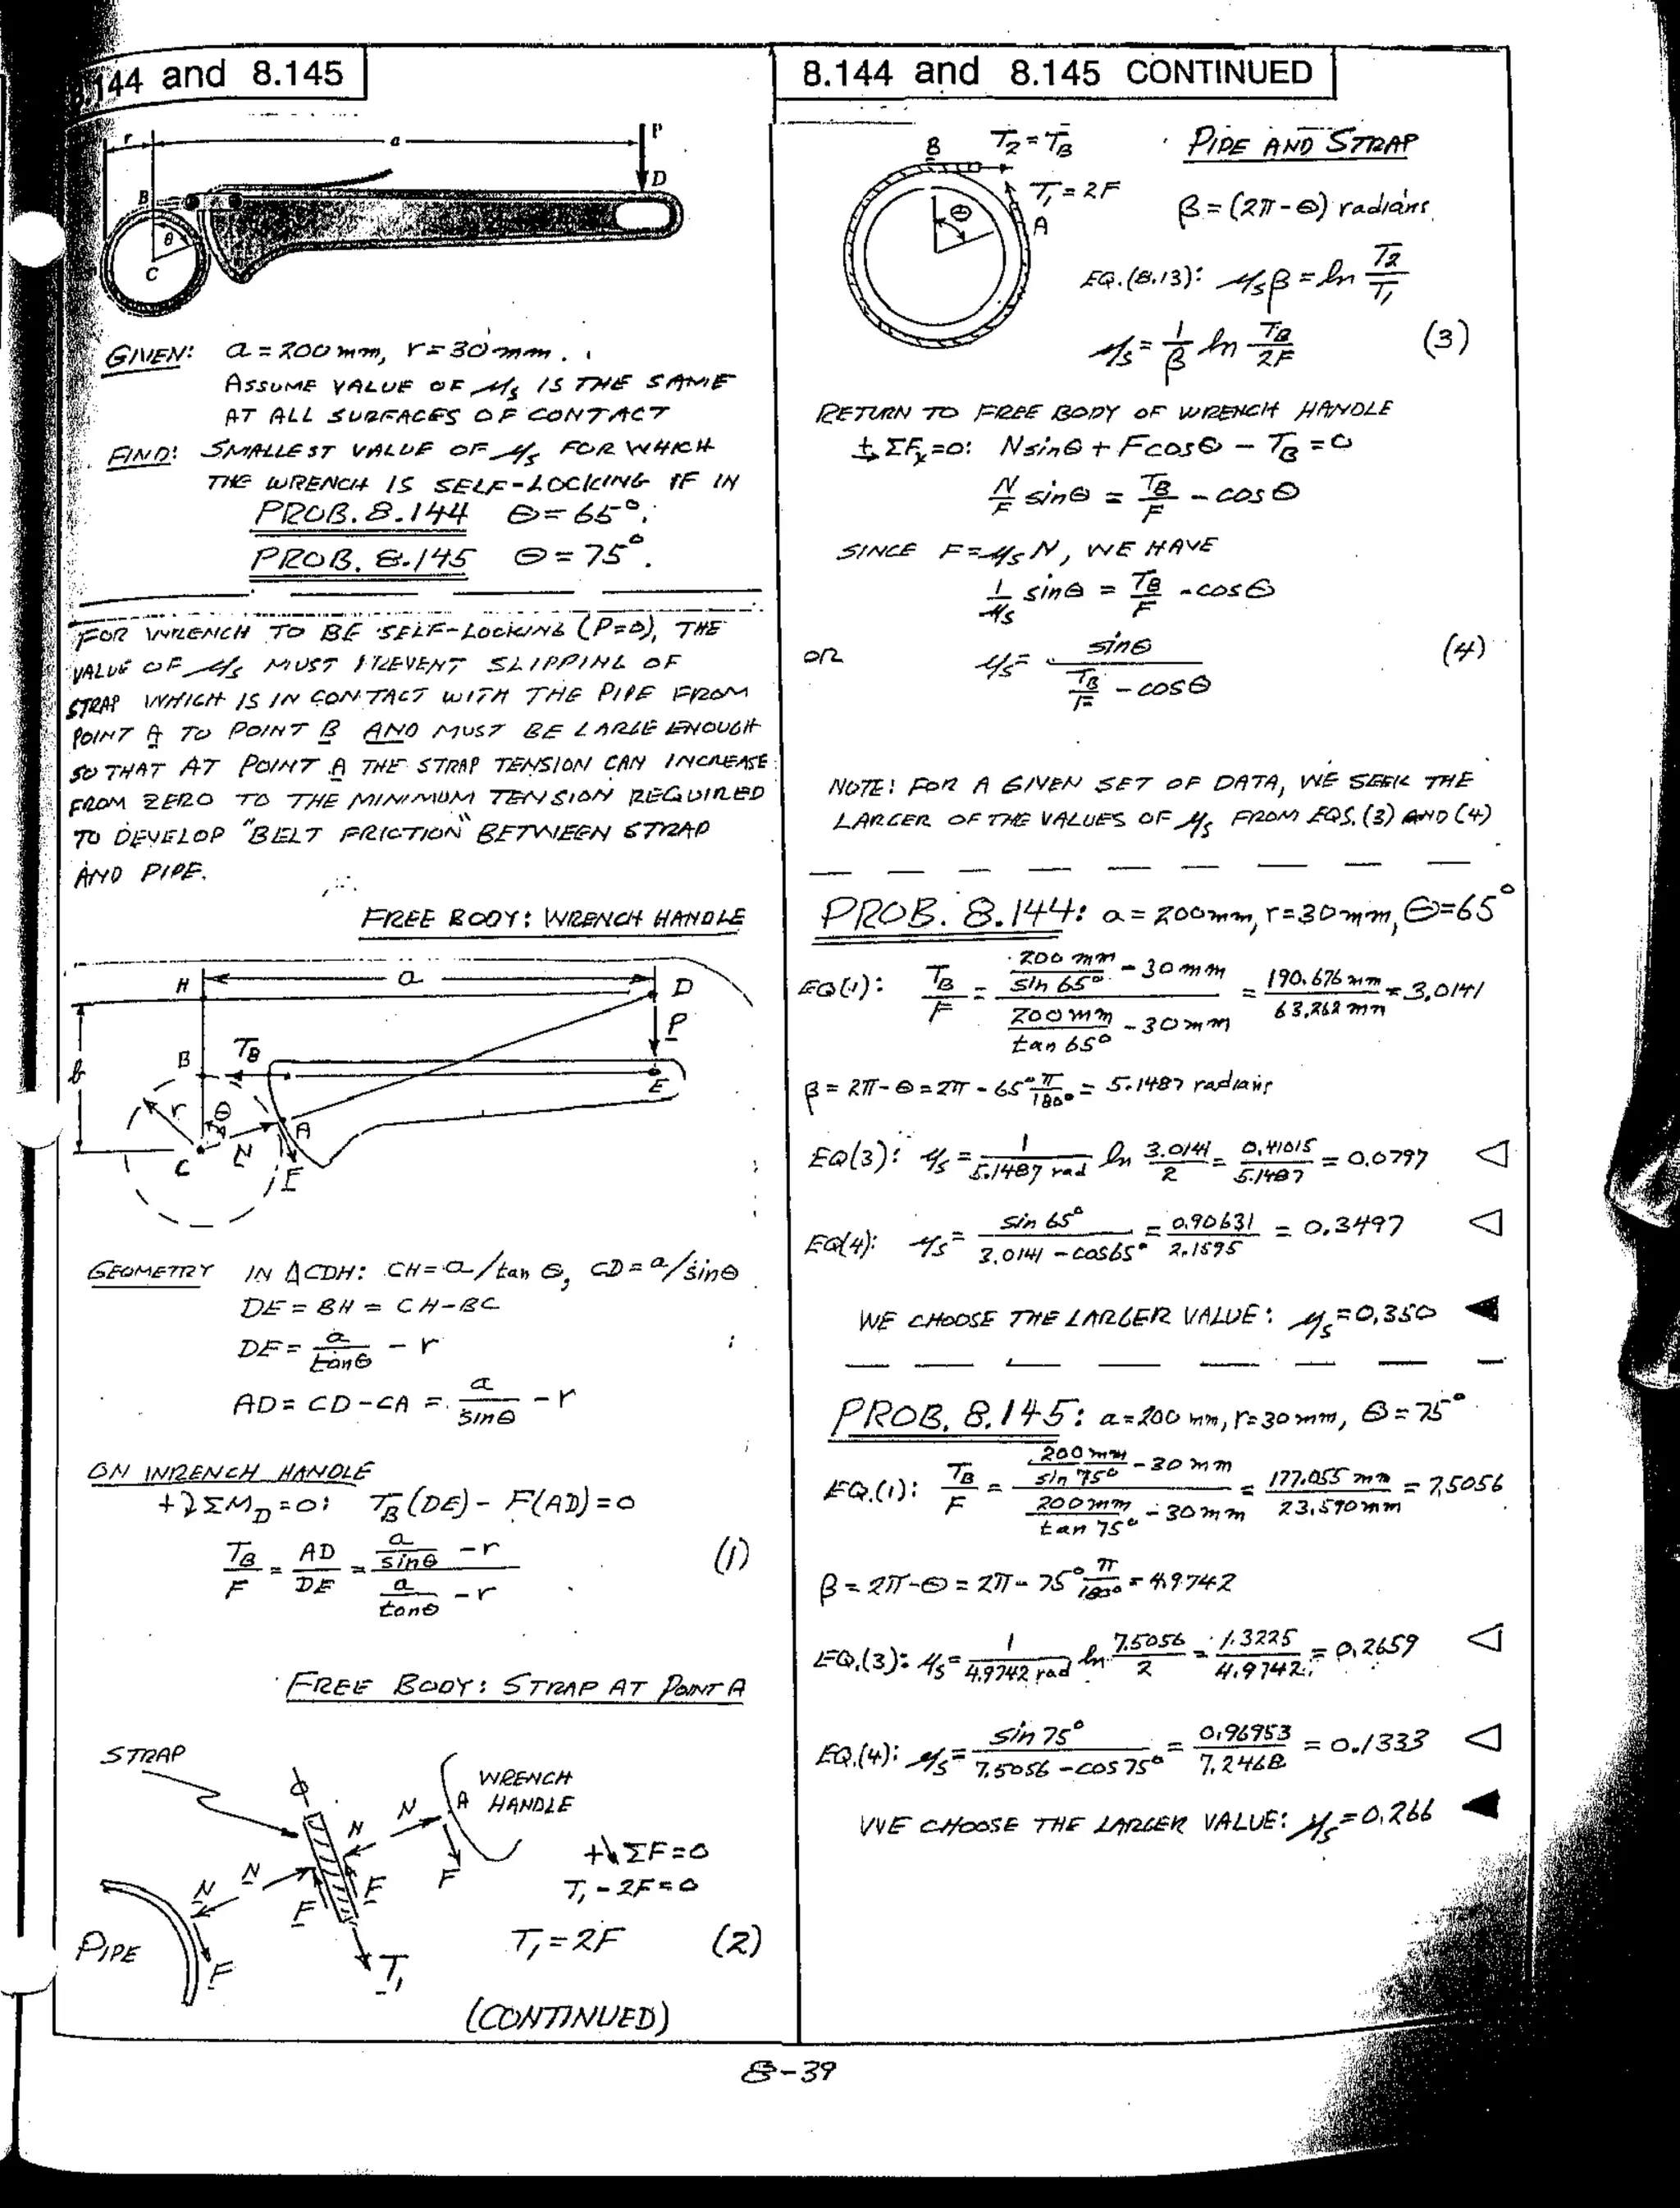 8.144 and 8.145
r
a
P
B
D
θ
C
GIVEN: a = 200 mm, r = 30 mm.
ASSUME VALUE OF μs IS THE SAME
AT ALL SURFACES OF CONTACT
FIND: SMALLEST VALUE OF μs FOR WHICH
THE WRENCH IS SELF-LOCKING IF IN
PROB. 8.144 θ = 65°.
PROB. 8.145 θ = 75°.
FOR WRENCH TO BE SELF-LOCKING (P=0), THE
VALUE OF μs MUST PREVENT SLIPPING OF
STRAP WHICH IS IN CONTACT WITH THE PIPE FROM
POINT A TO POINT B AND MUST BE LARGE ENOUGH
SO THAT AT POINT A THE STRAP TENSION CAN INCREASE
FROM ZERO TO THE MINIMUM TENSION REQUIRED
TO DEVELOP "BELT FRICTION" BETWEEN STRAP
AND PIPE.
FREE BODY: WRENCH HANDLE
H
a
D
P
b
B
TB
E
r
θ
A
C
N
F
GEOMETRY IN ΔCDH: CH = a/tan θ, CD = a/sin θ
DE = BH = CH - BC
DE = a/tan θ - r
AD = CD - CA = a/sin θ - r
ON WRENCH HANDLE
+⤵ ΣMD = 0: TB (DE) - F(AD) = 0
TB/F = AD/DE = (a/sin θ - r)/(a/tan θ - r) (1)
FREE BODY: STRAP AT POINT A
STRAP
WRENCH
HANDLE
A
N
N
F
N
N
F
F
PIPE
F
T1
+↘ ΣF = 0
T1 - 2F = 0
T1 = 2F (2)
(CONTINUED)
8.144 and 8.145 CONTINUED
B
T2 = TB
T1 = 2F
θ
A
PIPE AND STRAP
β = (2π - θ) radians
EQ. (8.13): μs β = ln T2/T1
μs = 1/β ln TB/2F (3)
RETURN TO FREE BODY OF WRENCH HANDLE
+→ ΣFx = 0: N sin θ + F cos θ - TB = 0
N/F sin θ = TB/F - cos θ
SINCE F = μs N, WE HAVE
1/μs sin θ = TB/F - cos θ
OR μs = sin θ/(TB/F - cos θ) (4)
NOTE: FOR A GIVEN SET OF DATA, WE SEEK THE
LARGER OF THE VALUES OF μs FROM EQS. (3) AND (4)
PROB. 8.144: a = 200 mm, r = 30 mm, θ = 65°
EQ (1): TB/F = (200 mm/sin 65° - 30 mm)/(200 mm/tan 65° - 30 mm) = 190.676 mm/63.262 mm = 3.0141
β = 2π - θ = 2π - 65° π/180° = 5.1487 radians
EQ (3): μs = 1/5.1487 rad ln 3.0141/2 = 0.41015/5.1487 = 0.0797
EQ (4): μs = sin 65°/(3.0141 - cos 65°) = 0.90631/2.1595 = 0.3497
WE CHOOSE THE LARGER VALUE: μs = 0.350
PROB. 8.145: a = 200 mm, r = 30 mm, θ = 75°
EQ. (1): TB/F = (200 mm/sin 75° - 30 mm)/(200 mm/tan 75° - 30 mm) = 177.055 mm/23.590 mm = 7.5056
β = 2π - θ = 2π - 75° π/180° = 4.9742
EQ. (3): μs = 1/4.9742 rad ln 7.5056/2 = 1.3225/4.9742 = 0.2659
EQ. (4): μs = sin 75°/(7.5056 - cos 75°) = 0.96953/7.2468 = 0.1333
WE CHOOSE THE LARGER VALUE: μs = 0.266
8-39